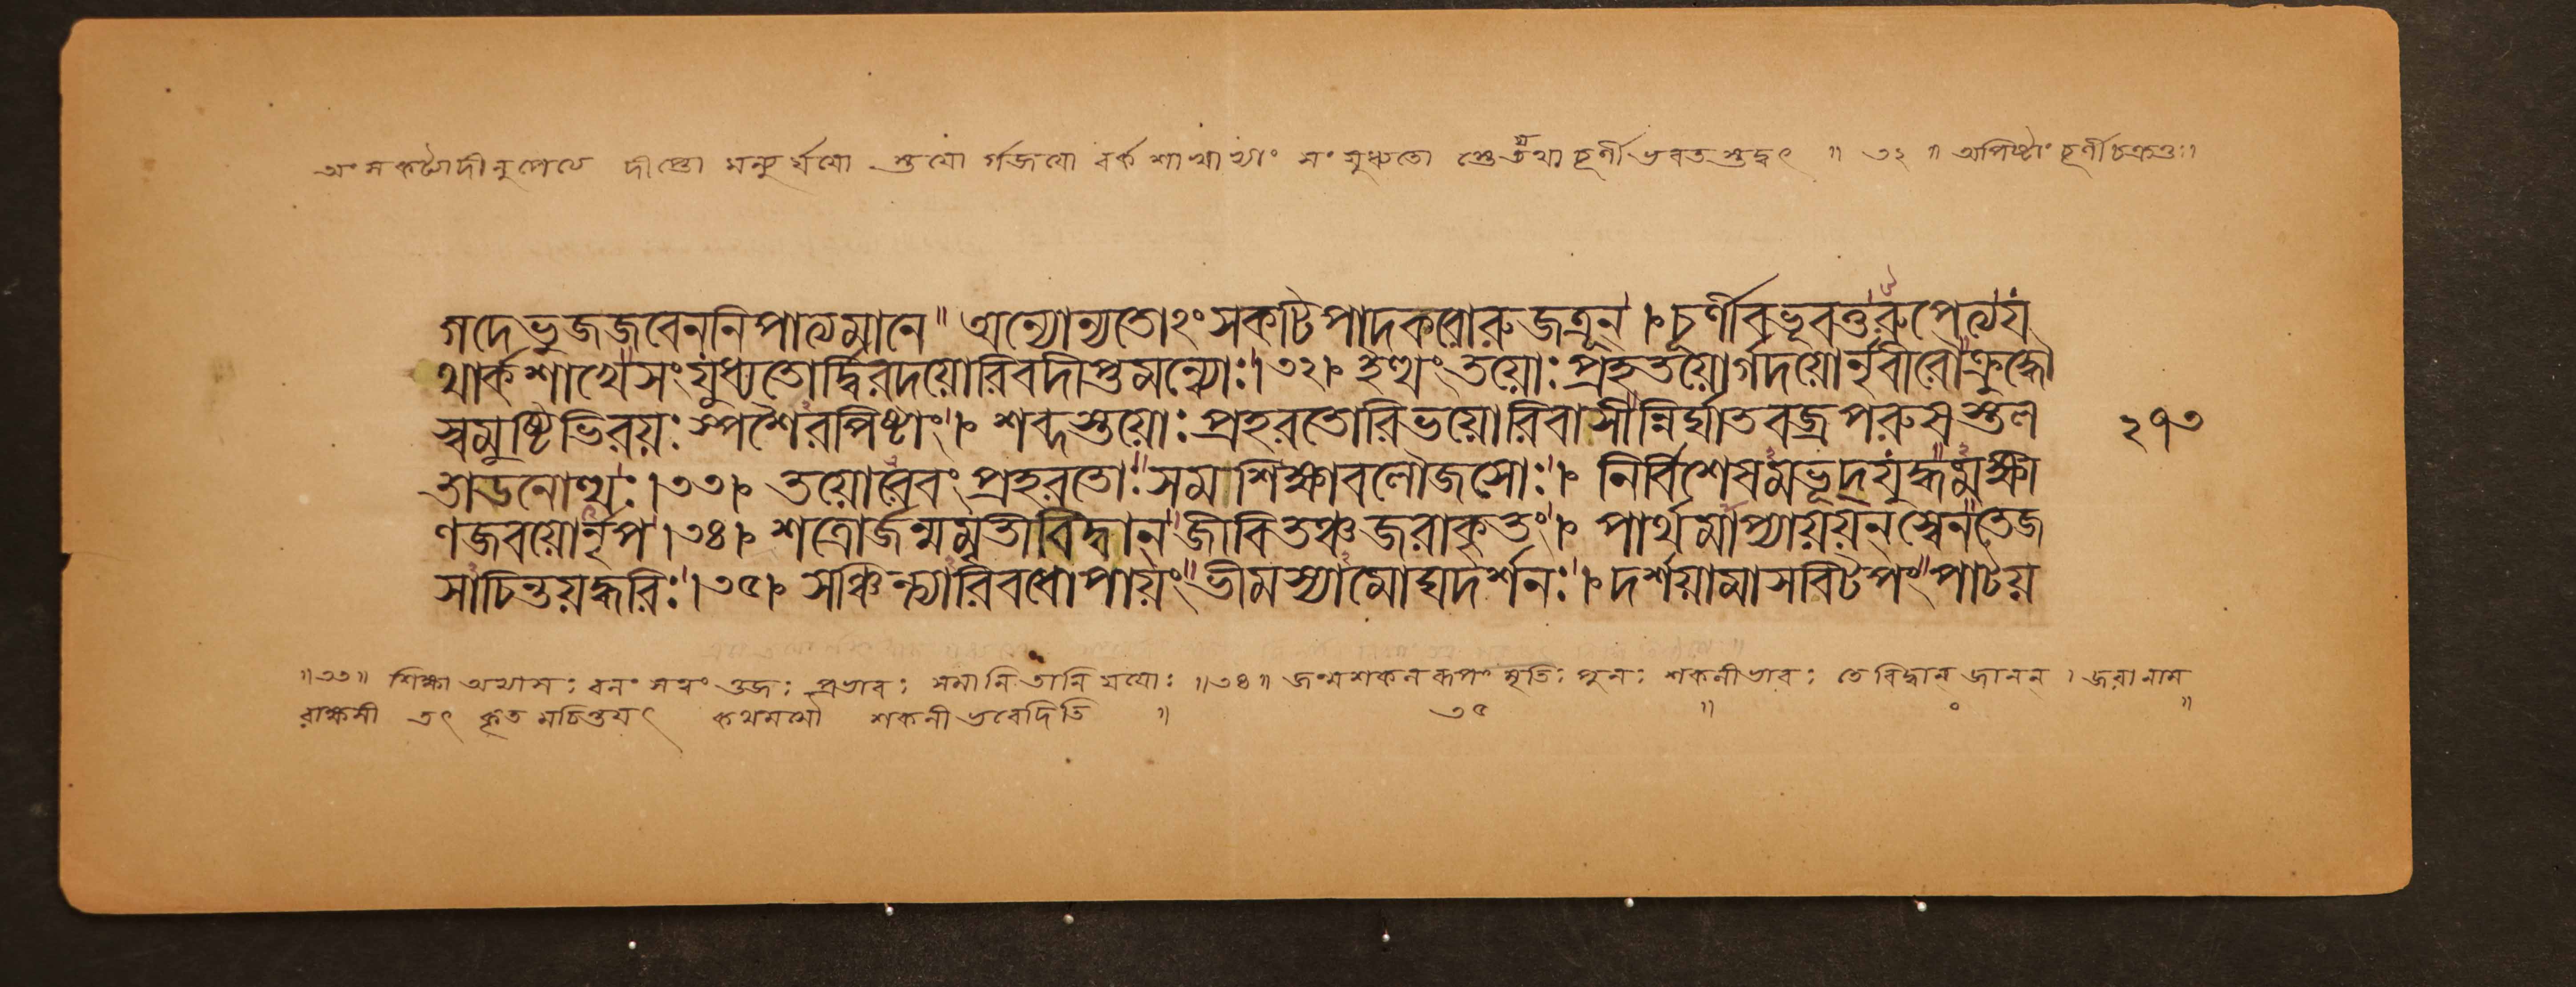 অংসকট্যাদীনুপেত্য দীপ্তো মন্যু র্যযো স্তযো র্গজযো রর্ক শাখাখ্যং সংযুধ্যতো স্তে তযথা চূর্ণীভবতস্তদ্বৎ ॥ ৩২ ॥ অপিষ্টাং চূর্ণীচক্রতুঃ।
গদেভুজজবেননিপাত্যমানে॥ অন্যোন্যতোঽংসকটিপাদকরোরুজত্রূন্। চূর্ণীবভূবতুরুপেত্যয
থার্কশাখেসংযুধ্যতোর্দ্বিরদয়োরিবদীপ্তমন্য্বোঃ।৩২। ইত্থং তয়োঃ প্রহৃতয়োর্গদয়োর্নৃবীরৌক্রুদ্ধৌ
স্বমুষ্টিভিরয়ঃ স্পর্শৈরপিষ্টাং। শব্দস্তয়োঃ প্রহরতোরিভয়োরিবাসীন্নির্ঘাতবজ্রপরুষস্তল
তাডনোত্থঃ।৩৩। তয়োরেবং প্রহরতোঃ সমশিক্ষাবলৌজসোঃ। নির্বিশেষমভূদ্যুদ্ধমক্ষী
ণজবয়োর্নৃপ।৩৪। শত্রোর্জন্মমৃতীবিদ্বান্ জীবিতঞ্চ জরাকৃতং। পার্থমাপ্যায়য়ন্ স্বেনতেজ
সাচিন্তয়দ্ধরিঃ।৩৫। সঞ্চিন্ত্যারিবধোপায়ং ভীমস্যামোঘদর্শনঃ। দর্শয়ামাসবিটপং পাটয়
২৭৩
॥৩৩॥ শিক্ষা অভ্যাসঃ বলং সত্বং ওজঃ প্রভাবঃ সমানি তানি যযোঃ ॥৩৪॥ জন্ম শকল রূপং মৃতিঃ পুনঃ শকলীভাবঃ তে বিদ্বান্ জানন্। জরা নাম
রাক্ষসী তৎ কৃত মচিন্তযৎ কথমসৌ শকলীভবেদিতি ॥ ৩৫ ॥ ॥